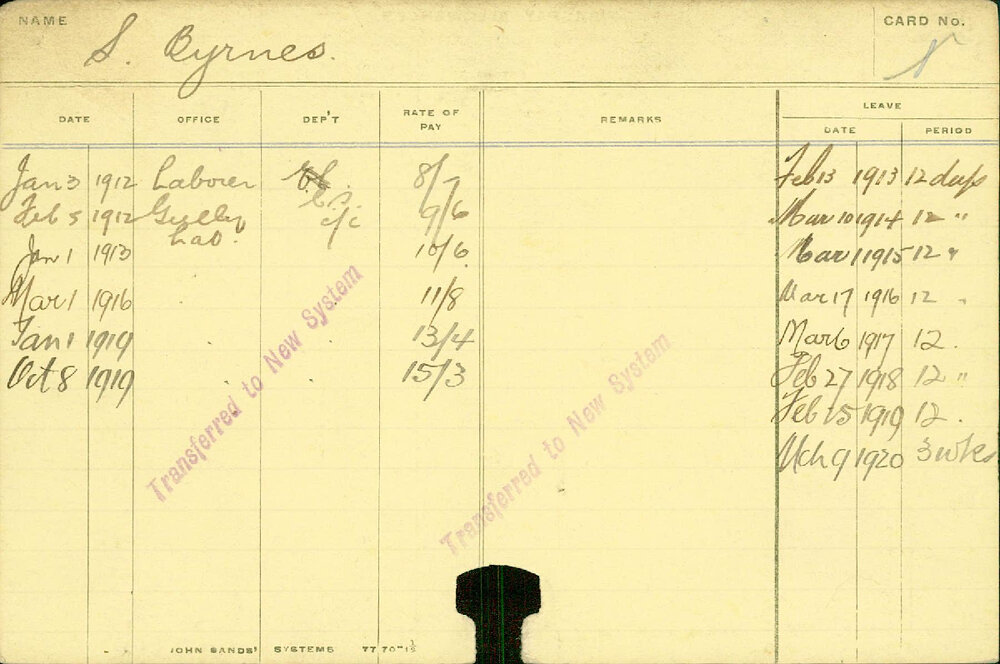 NAME
CARD No.
S. Byrnes.
DATE OFFICE DEP'T RATE OF PAY REMARKS LEAVE
DATE PERIOD
Jan 3 1912 Laborer 8/7 Feb 13 1913 12 days
Feb 5 1912 Gully Lab. c/c 9/6 Mar 10 1914 12 "
Jan 1 1913 10/6 Mar 1 1915 12 "
Mar 1 1916 11/8 Mar 17 1916 12 "
Jan 1 1919 13/4 Mar 6 1917 12 .
Oct 8 1919 15/3 Feb 27 1918 12 "
Feb 15 1919 12 .
Mch 9 1920 3 wks
Transferred to New System
Transferred to New System
JOHN SANDS' SYSTEMS